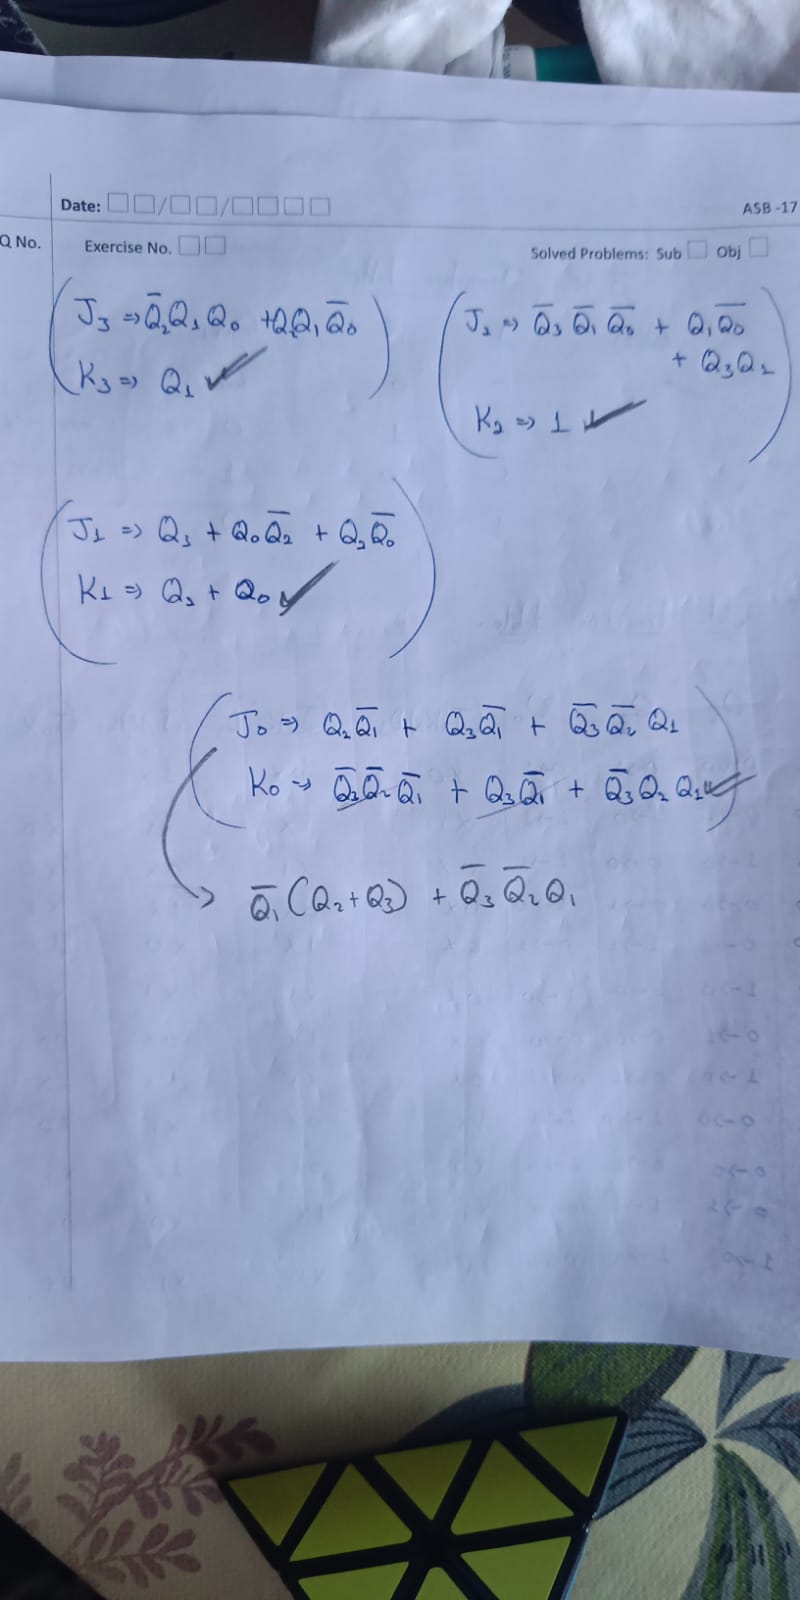 Date: □□/□□/□□□□
ASB -17
Q No.
Exercise No. □□
Solved Problems: Sub □ Obj □
J₃ => Q̄₂Q₁Q₀ + Q₂Q₁Q̄₀
K₃ => Q₁ ✓
J₂ => Q̄₃ Q̄₁ Q̄₀ + Q₁Q̄₀
+ Q₃Q₁
K₂ => 1 ✓
J₁ => Q₃ + Q₀Q̄₂ + Q₂Q̄₀
K₁ => Q₂ + Q₀ ✓
J₀ => Q₂Q̄₁ + Q₃Q̄₁ + Q̄₃Q̄₂Q₁
K₀ => Q̄₃Q̄₂Q̄₁ + Q₃Q̄₁ + Q̄₃Q₂Q₁ ✓
Q̄₁(Q₂+Q₃) + Q̄₃Q̄₂Q₁